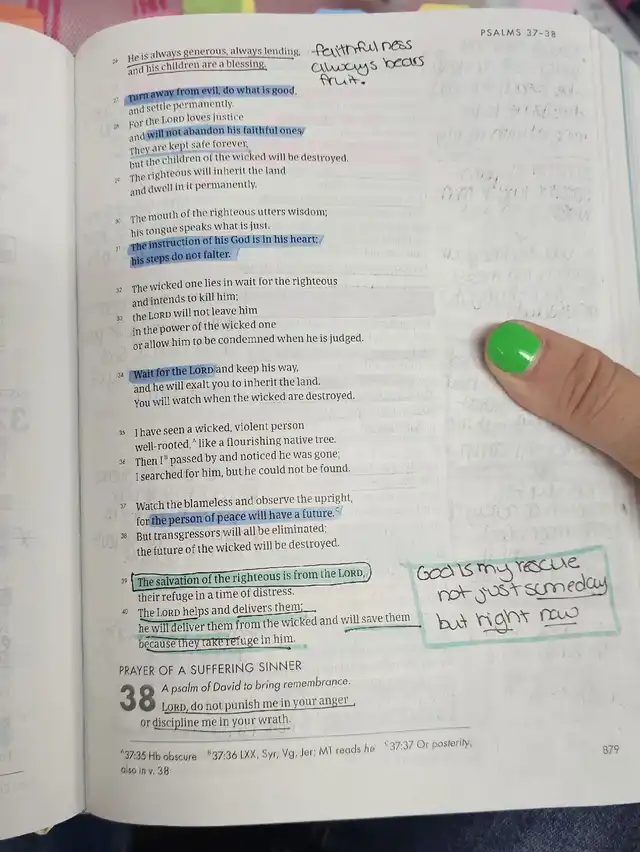 PSALMS 37–38
26 He is always generous, always lending,
and his children are a blessing.
faithfulness
always bears
fruit.
27 Turn away from evil, do what is good,
and settle permanently.
28 For the LORD loves justice
and will not abandon his faithful ones.
They are kept safe forever,
but the children of the wicked will be destroyed.
29 The righteous will inherit the land
and dwell in it permanently.
30 The mouth of the righteous utters wisdom;
his tongue speaks what is just.
31 The instruction of his God is in his heart;
his steps do not falter.
32 The wicked one lies in wait for the righteous
and intends to kill him;
33 the LORD will not leave him
in the power of the wicked one
or allow him to be condemned when he is judged.
34 Wait for the LORD and keep his way,
and he will exalt you to inherit the land.
You will watch when the wicked are destroyed.
35 I have seen a wicked, violent person
well-rooted,A like a flourishing native tree.
36 Then IB passed by and noticed he was gone;
I searched for him, but he could not be found.
37 Watch the blameless and observe the upright,
for the person of peace will have a future.C
38 But transgressors will all be eliminated;
the future of the wicked will be destroyed.
39 The salvation of the righteous is from the LORD,
their refuge in a time of distress.
40 The LORD helps and delivers them;
he will deliver them from the wicked and will save them
because they take refuge in him.
God is my rescue
not just someday
but right now
PRAYER OF A SUFFERING SINNER
38 A psalm of David to bring remembrance.
LORD, do not punish me in your anger
or discipline me in your wrath.
A37:35 Hb obscure B37:36 LXX, Syr, Vg, Jer; MT reads he C37:37 Or posterity,
also in v. 38
879